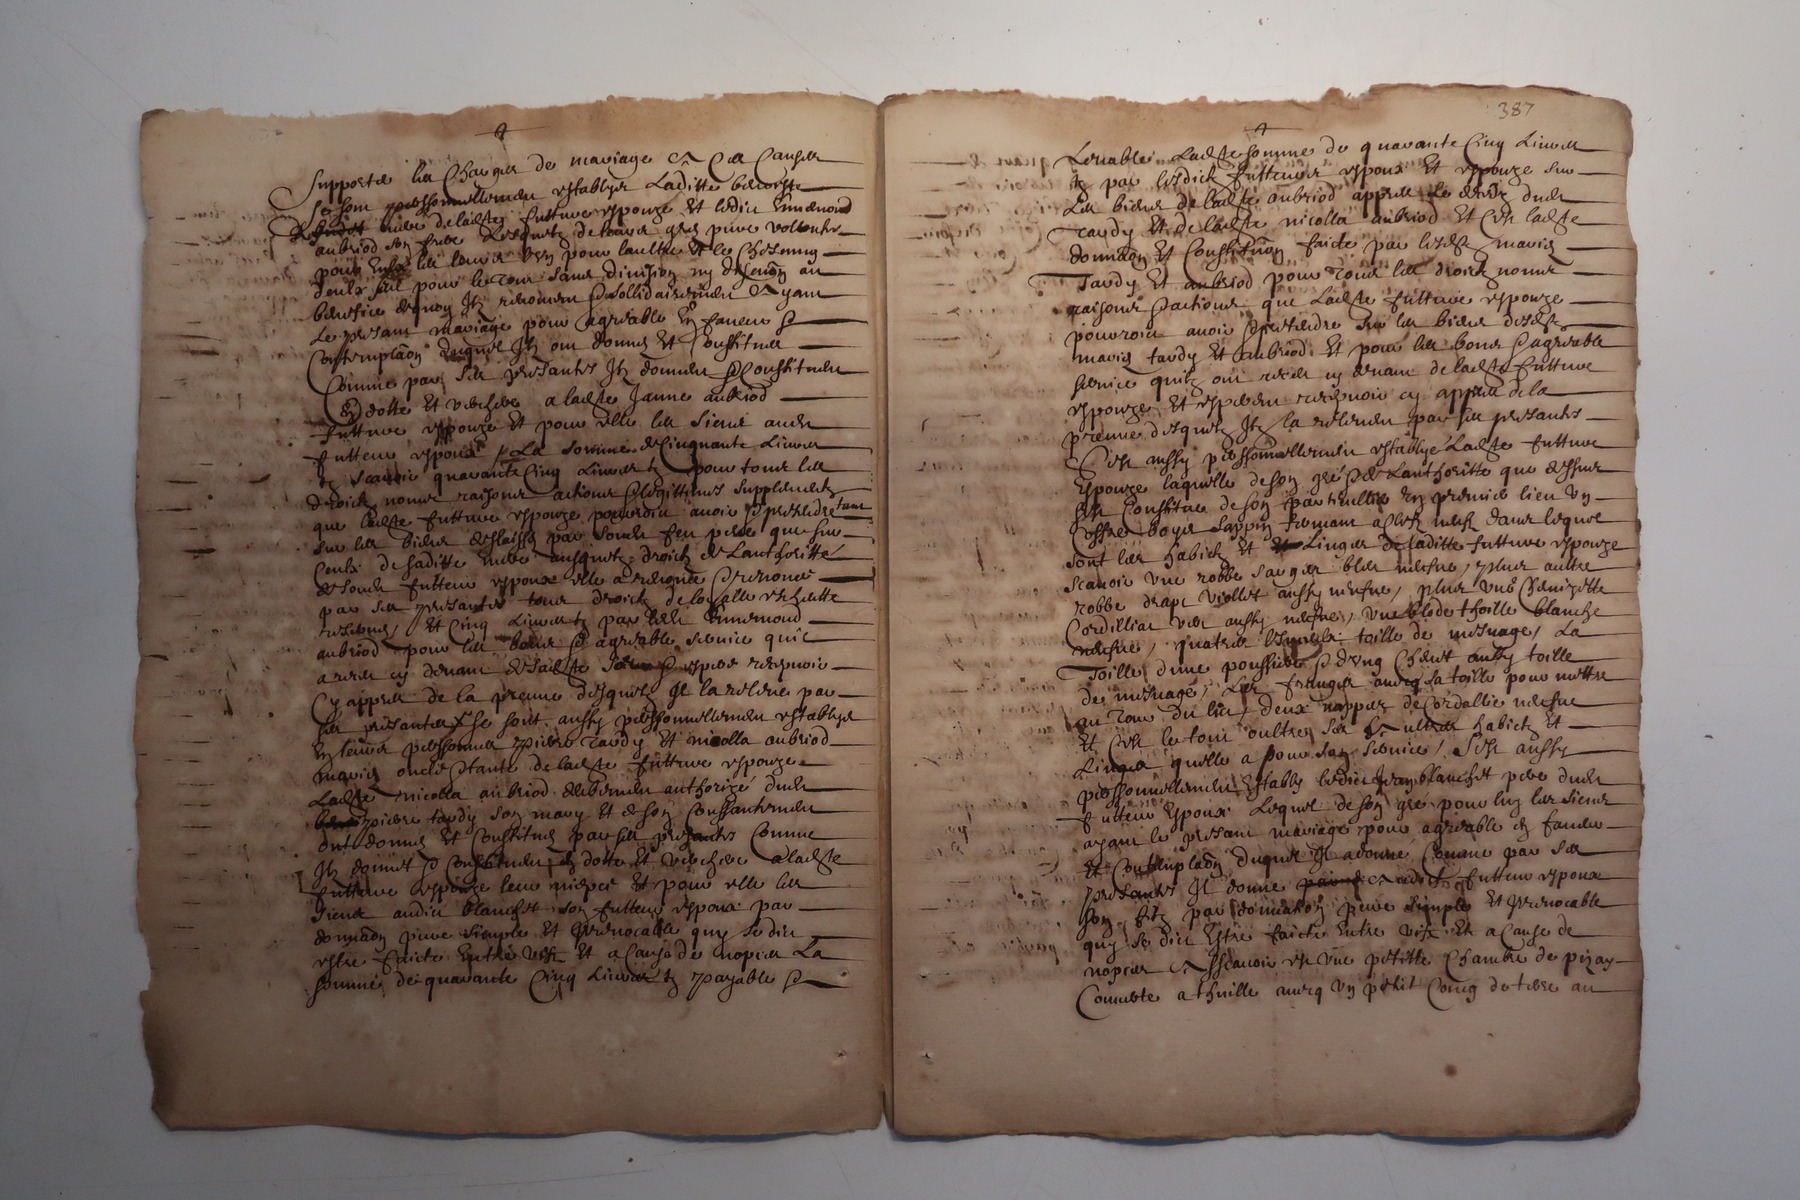 supporter les charges de mariage Et Ce a Cause
se sont personnellement establys Laditte benoiste
mere de ladte future espouze Et ledit Ennemond
aubriod son frere Lesquelz de leurs grez pure volonte
pour Eulx les leurs L'un pour l'aultre Et le Chescung
d'eulx seul pour le tout sans division ny discution au
benefice dequoy Ilz renoncent & sollidairement Ayant
Le present mariage pour agreable En faveur &
Contemplaon duquel Ilz ont donné Et Constitué
Comme par ses presantes Ilz donnent & Constituent
En dotte Et verchere a ladte Janne aubriod
futture espouze Et pour elle les siens audit
futteur espoux La somme de Cinquante Livres
tz scavoir quarante Cinq Livres tz pour tous les
droictz noms raisons actions & legittimes supplementz
que ladte future espouze pourroit avoir & pretendre tant
sur les biens delaissez par sondt feu pere que sur
Ceulx de saditte mere ausquelz droictz de L'authoritté
de sondt futteur espoux elle a renoncé & renonce
par ses presantes tous droictz de loyalle escheutte
reservez, Et Cinq Livres tz par ledt Ennemond
aubriod pour les bons & agreable service qu'il
a receu cy devant de sadte seur & espere recepvoir
Cy appres de la preuve desquelz Il la relleve par
ses presantes se sont aussy personnellement establys
En leurs personnes pierre tardy Et nicolla aubriod
mariez oncle & tante de ladte future espouze
Ladte nicolla aubriod deuement authorizé dudt
pierre tardy son mary Et de son Consantement
ont donné Et Constitué par ses presantes Comme
Ilz donnent & Constituent en dotte Et verchere a ladte
futture espouze leur niepce Et pour elle les
siens audit blanchet son futteur espoux par
donnaon pure simple Et Irrevocable que se dict
estre faicte Entre vifz Et a Cause de nopces La
somme de quarante Cinq Livres tz payable &
387
Levable Ladte somme de quarante Cinq Livres
tz par lesdictz futteurs espoux Et espouze sur
Les biens de ladte aubriod appres Le deces dudt
Tardy Et de ladte nicolla aubriod Et C'est ladte
donnaon Et Constitution faicte par lesdtz mariez
Tardy Et aubriod pour tous les droictz noms
raisons & actions que Ladte futture espouze
pourroit avoir & pretendre sur les biens desdtz
mariez tardy Et aubriod Et pour les bons & agreable
service quilz ont receu cy devant de ladte futture
espouze Et esperent recepvoir cy appres de la
preuve desquelz Ilz la relevent par ses presantes
C'est aussy personnellement establye Ladte futture
Espouze laquelle de son gré & de L'authoritté que dessus
s'est Constitué de son particullier En premier lieu Un
Coffre boys sappin fermant a clefz neufz dans lequel
sont les habictz Et Linges de laditte futture espouze
scavoir une robbe sarge bleu neufve, plus aultre
robbe drapt viollet aussy neufve, plus une Chemizette
Cordilliat vert aussy neufve, une blode thoille blanche
neufve, quatre toille de mesnage, La
Toille d'une poussiere & d'ung Chevet aussy toille
de mesnage, Les franges avecq sa toille pour mettre
au tour du lict, deux nappes de Cordallie neufve
Et C'est le tout oultre ses aultres habictz Et
Linges quelle a pour son service, s'est aussy
personnellement Establly ledict Jean blanchet pere dudt
futteur Espoux Lequel de son gré pour luy les siens
ayant le present mariage pour agreable En faveur
Et Contemplaon duquel Il a donné Comme par ses
presantes Il donne audict futteur espoux
son filz par donnation pure simple Et Irrevocable
que se dict Estre faicte Entre vifz Et a Cause de
nopces Asscavoir est une petitte Chambre de pizay
Couverte a thuille avecq un petit Coing de terre au